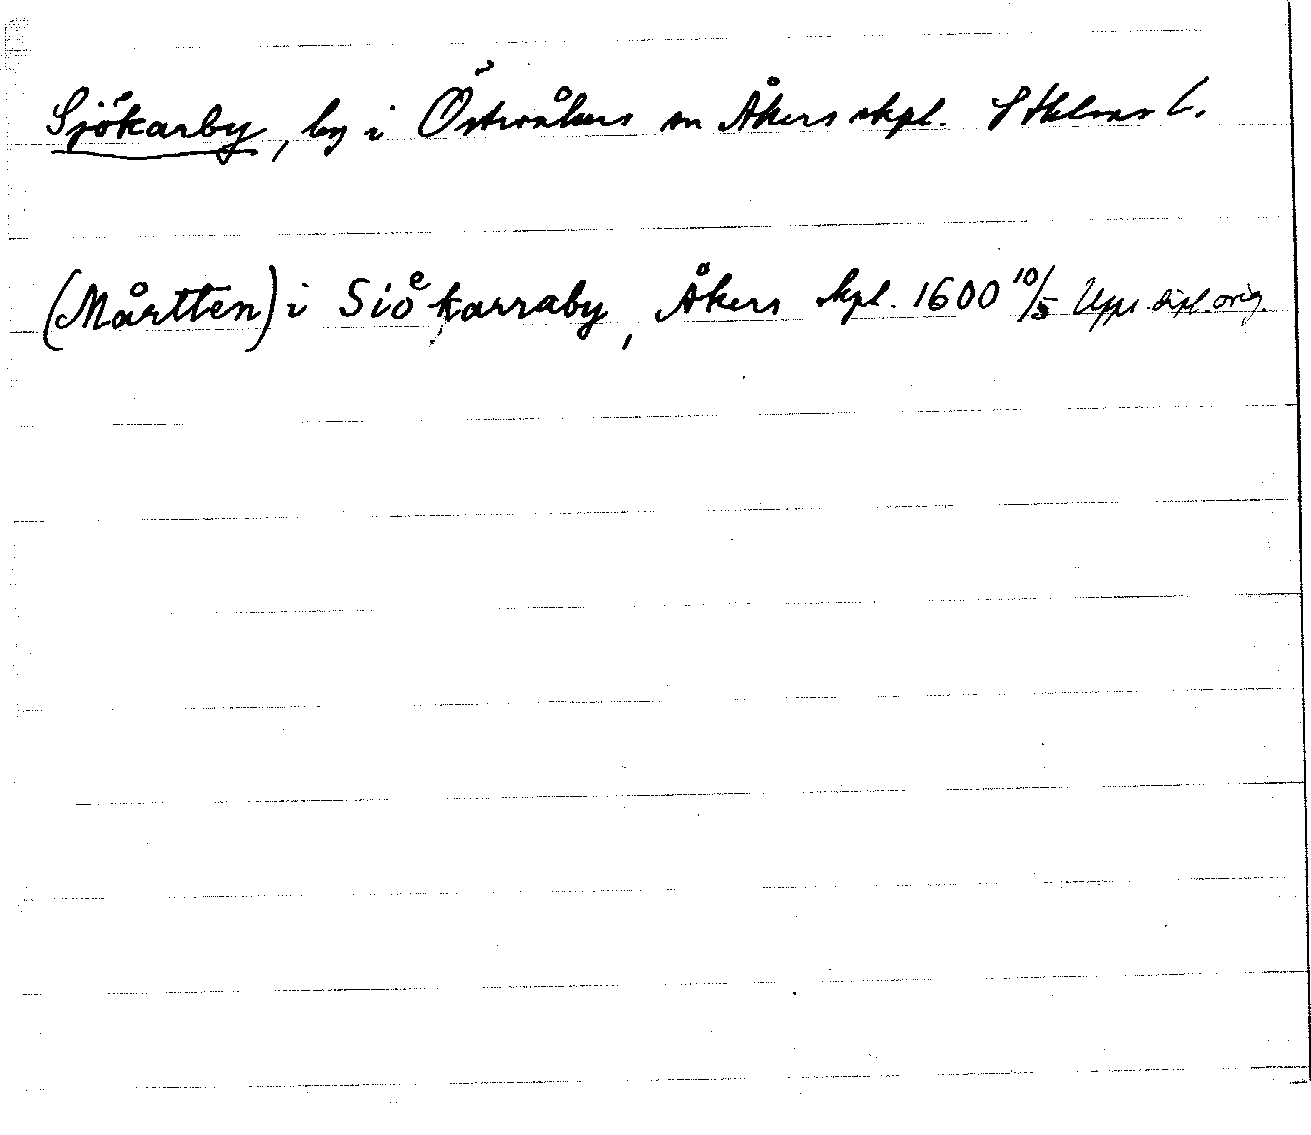 Sjökarby, by i Österåkers sn Åkers skpl. Sthlms l.
(Mårtten) i Sioͤkarraby, Åkers skpl. 1600 10/5 Upps. dipl. orig.